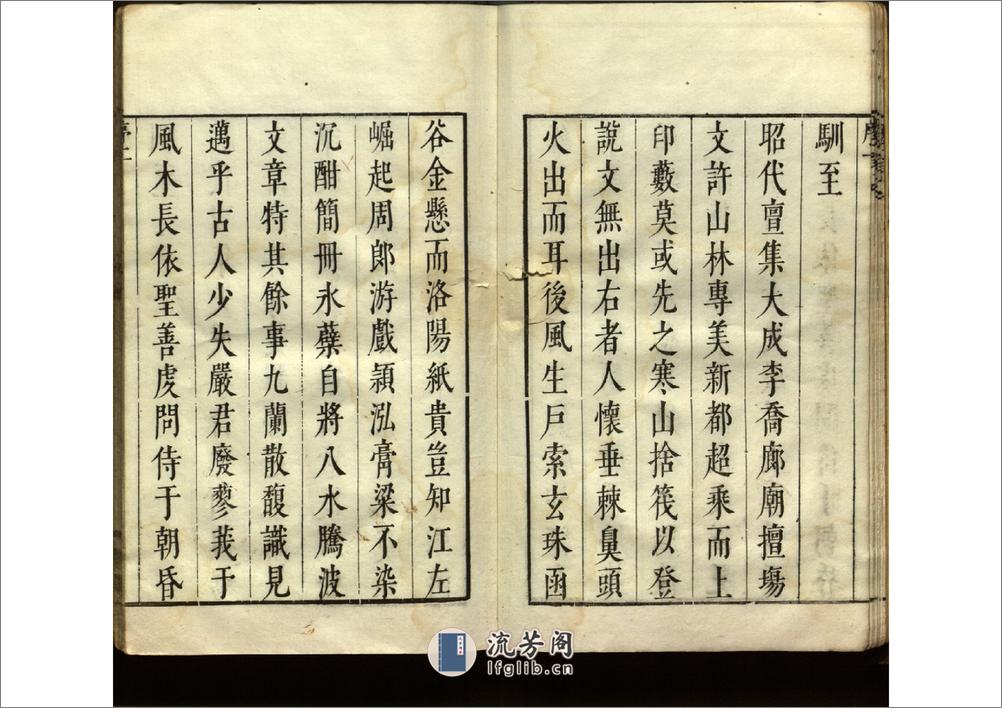 馴至
昭代亶集大成李喬廊廟擅塲
文許山林專美新都超乘而上
印藪莫或先之寒山捨筏以登
說文無出右者人懷垂棘臭頭
火出而耳後風生戸索玄珠函
谷金懸而洛陽紙貴豈知江左
崛起周郎游戲潁泓膏粱不染
沉酣簡冊氷蘗自將八水騰波
文章特其餘事九蘭散馥識見
邁乎古人少失嚴君廢蓼莪于
風木長依聖善虔問侍于朝昏
流芳阁
lfglib.cn